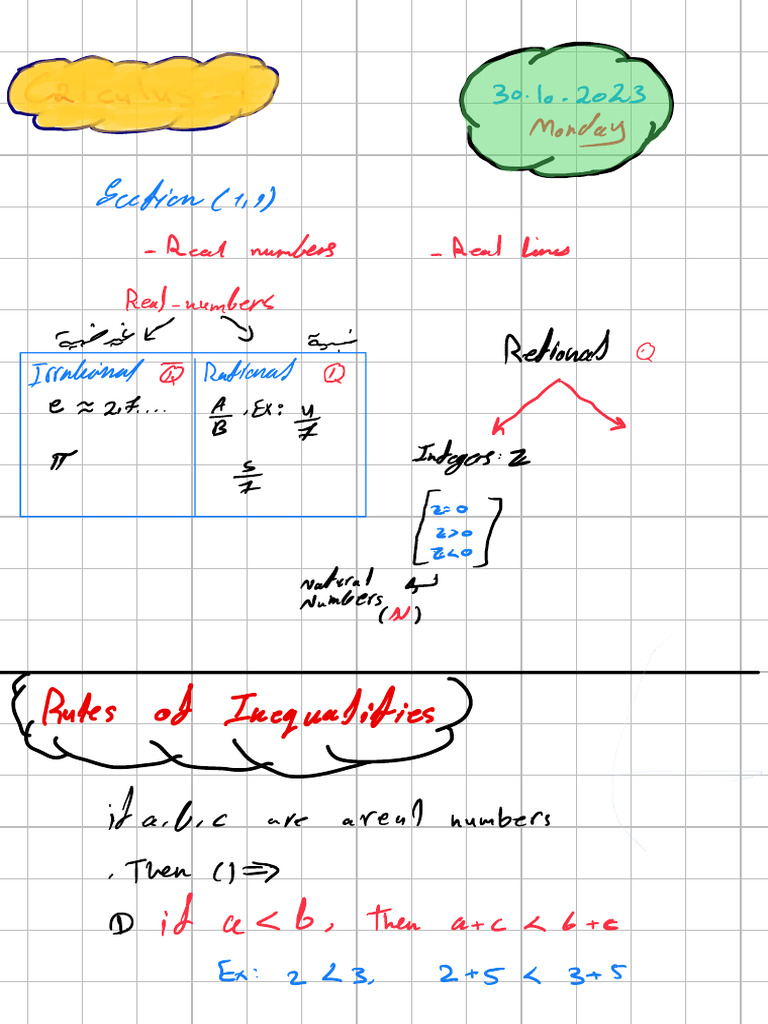 Calculus - 1
30.10.2023
Monday
Section (1,1)
- Real numbers
- Real lines
Real-numbers
نسبية
Irrational Q̅
Rational Q
e ≈ 2,7....
A/B , Ex: 4/7
π
5/7
Rational Q
Integers: Z
z=0
z>0
z<0
Natural
Numbers
(N)
Rules of Inequalities
if a, b, c are a real numbers
. Then () ⇒
① if a < b, then a+c < b+c
Ex: 2 < 3, 2+5 < 3+5